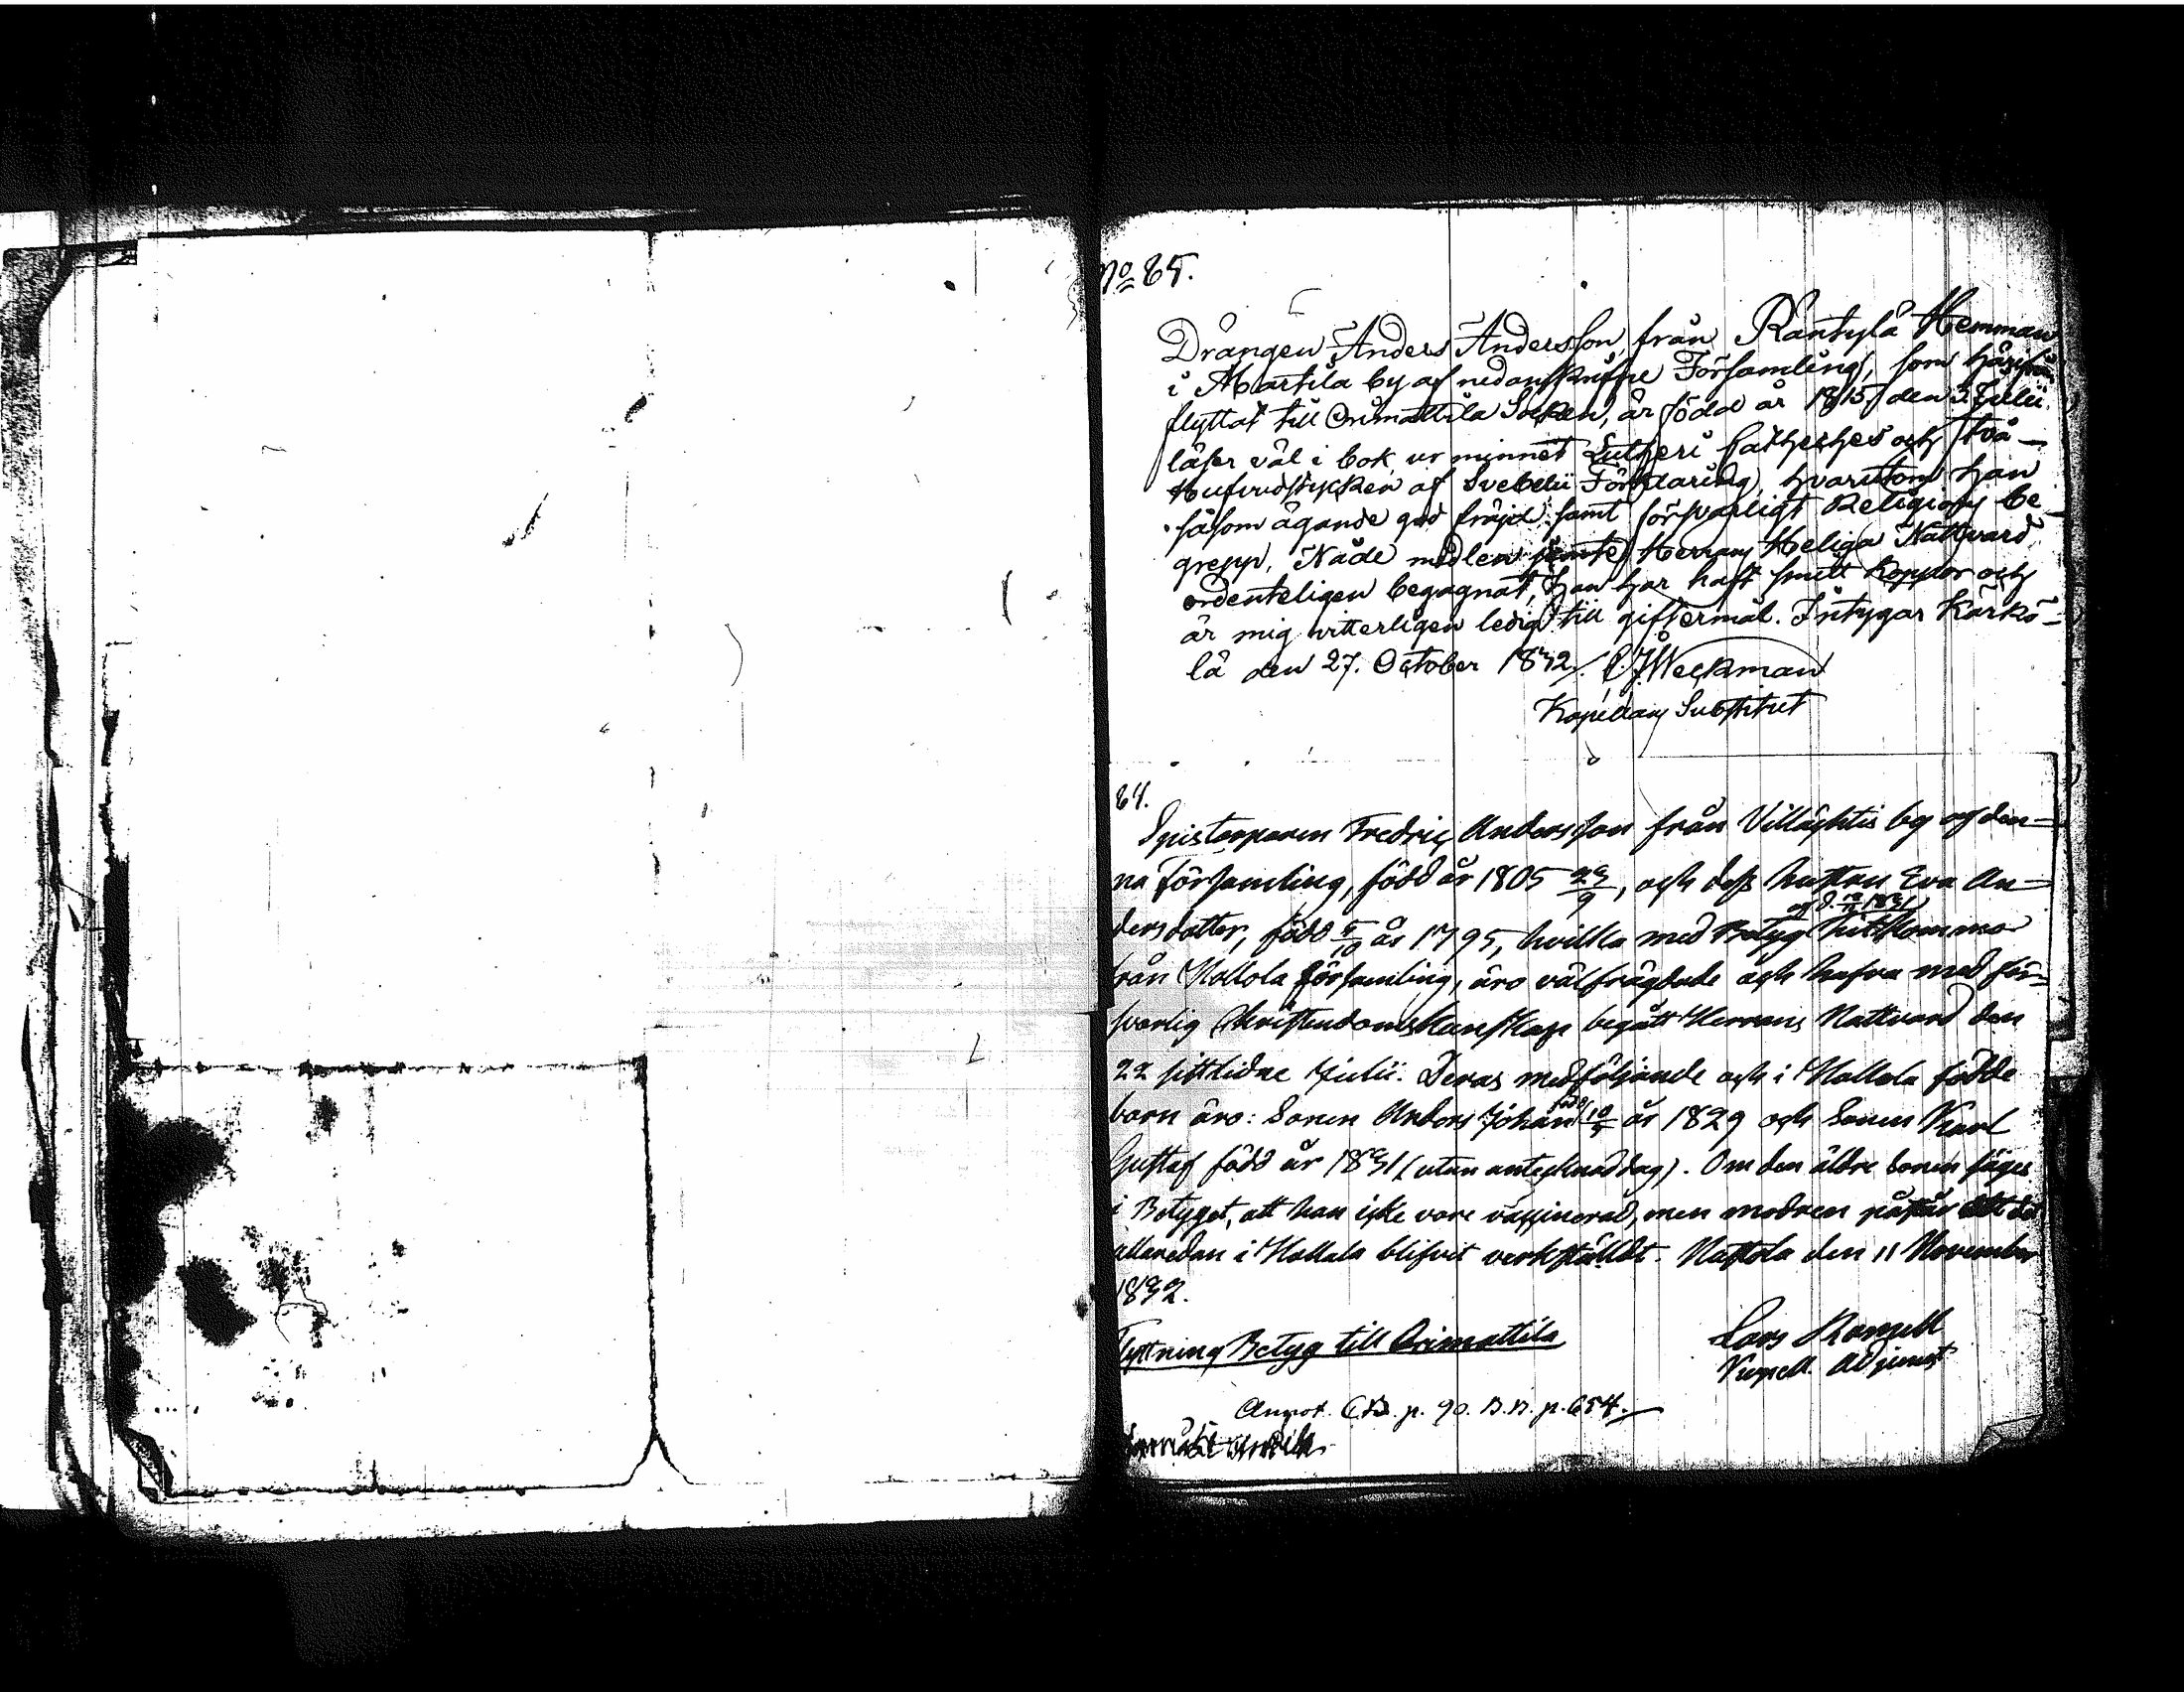 No 65.
Drängen Anders Andersson från Rantyla Hemman
i Martila by af nedanskrifne Församling, som härifrån
flyttat till Orimattila Socken, är född år 1815 den 3. Julii
läser väl i bok, ur minnet Lutheri Catheches och två
Hufvudstycken af Svebelii Förklaring, hvarutom han
såsom ägande god fräjd samt försvarligt Religions be-
grepp, Nåde medlen jemte Herrans Heliga Nattvard
ordenteligen begagnat, han har haft smitt Koppor och
är mig vitterligen ledig till giftermål. Intygar Kärkö-
lä den 27. October 1832. C. J. Weckman
Kapellans Substitut
64.
Spistorparen Fredric Andersson från Villähtis by af den-
na Församling, född år 1805 23/9, och dess hustru Eva An-
dersdotter, född 5/10 år 1795, hvilka med Betyg af d. 1831 hitkommo
från Hollola församling, äro välfrägdade och hafva med för-
svarlig Christendomskunskap begått Herrans Nattvard den
22 sistlidne Julii. Deras medföljande och i Hollola födde
barn äro: Sonen Anders Johan född 10/5 år 1829 och Sonen Karl
Gustaf född år 1831 (utan antecknad dag). Om den äldre sonen säges
i Betyget, att han icke vore vaccinerad, men modren påstår att det
allaredan i Hollola blifvit verkställdt. Nastola den 11 November
1832.
Flyttning Betyg till Orimattila
Lars Romell
Kapell. Adjunct
Annot. C.B. p. 90. B.B. p. 654.